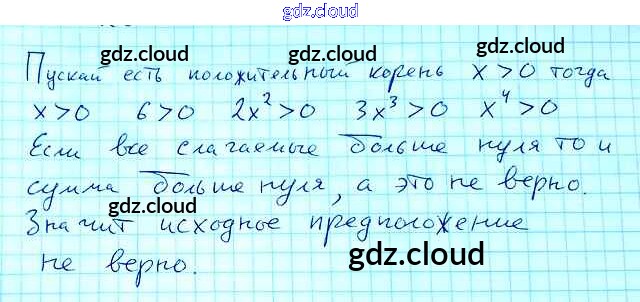 gdz.cloud
gdz.cloud gdz.cloud
Пускай есть положительный корень x > 0 тогда
x > 0 6 > 0 2x² > 0 3x³ > 0 x⁴ > 0
gdz.cloud gdz.cloud
Если все слагаемые больше нуля то и
сумма больше нуля, а это не верно.
gdz.cloud gdz.cloud
Значит исходное предположение
не верно.
gdz.cloud